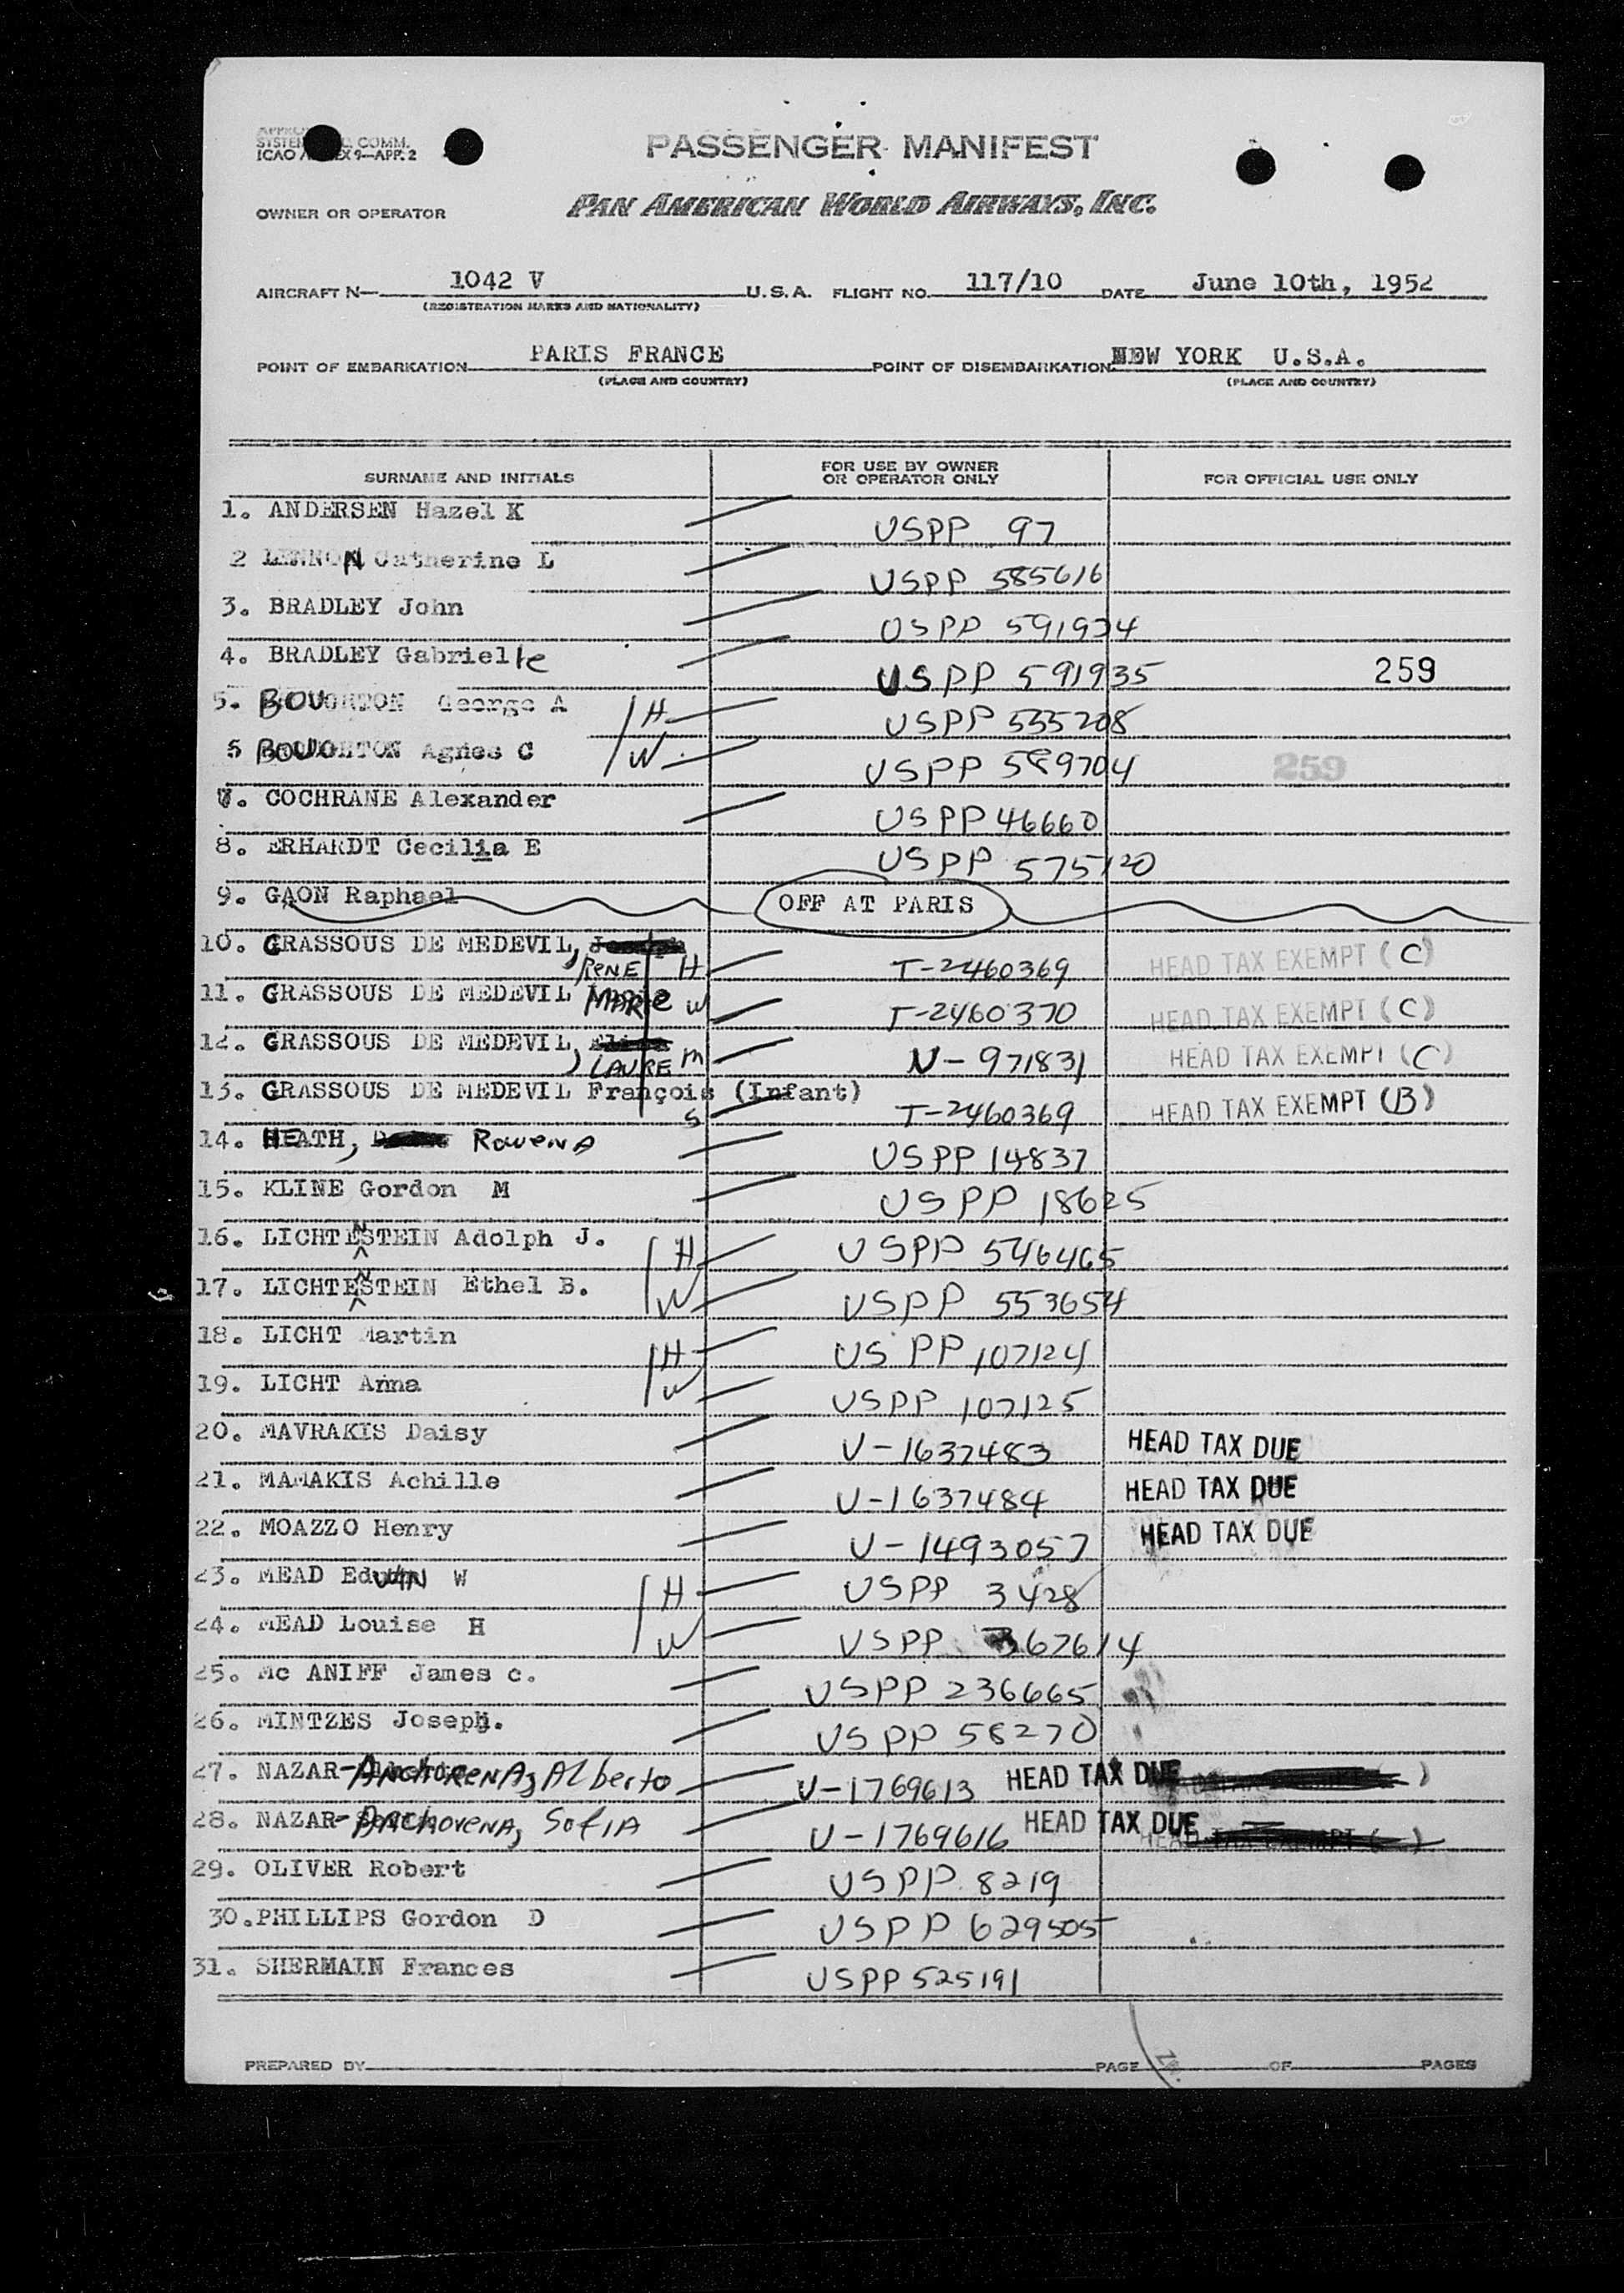 SYSTEM COMM.
ICAO ANNEX 9—APP. 2
PASSENGER MANIFEST
OWNER OR OPERATOR
PAN AMERICAN WORLD AIRWAYS, INC.
AIRCRAFT N— 1042 V U.S.A. FLIGHT NO. 117/10 DATE June 10th, 1952
(REGISTRATION MARKS AND NATIONALITY)
POINT OF EMBARKATION PARIS FRANCE POINT OF DISEMBARKATION NEW YORK U.S.A.
(PLACE AND COUNTRY) (PLACE AND COUNTRY)
SURNAME AND INITIALS FOR USE BY OWNER OR OPERATOR ONLY FOR OFFICIAL USE ONLY
1. ANDERSEN Hazel K USPP 97
2 LENNON Catherine L USPP 585616
3. BRADLEY John USPP 591934
4. BRADLEY Gabrielle USPP 591935 259
5. George A H USPP 535208
6 Agnes C W USPP 589704 259
7. COCHRANE Alexander USPP 46660
8. ERHARDT Cecilia E USPP 575120
9. GAON Raphael OFF AT PARIS
10. GRASSOUS DE MEDEVIL, RENE H T-2460369 HEAD TAX EXEMPT (C)
11. GRASSOUS DE MEDEVIL MARIE W T-2460370 HEAD TAX EXEMPT (C)
12. GRASSOUS DE MEDEVIL, LAURE m V-971831 HEAD TAX EXEMPT (C)
13. GRASSOUS DE MEDEVIL François (Infant) S T-2460369 HEAD TAX EXEMPT (B)
14. HEATH, RowenA USPP 14837
15. KLINE Gordon M USPP 18625
16. LICHTENSTEIN Adolph J. H USPP 546465
17. LICHTENSTEIN Ethel B. W USPP 553654
18. LICHT Martin H USPP 107124
19. LICHT Anna W USPP 107125
20. MAVRAKIS Daisy V-1637483 HEAD TAX DUE
21. MAMAKIS Achille V-1637484 HEAD TAX DUE
22. MOAZZO Henry V-1493057 HEAD TAX DUE
23. MEAD Edwin W H USPP 3428
24. MEAD Louise H W USPP 367614
25. Mc ANIFF James c. USPP 236665
26. MINTZES Joseph. USPP 58270
27. NAZAR-ANchoRENA, Alberto V-1769613 HEAD TAX DUE
28. NAZAR- SofIA V-1769616 HEAD TAX DUE
29. OLIVER Robert USPP 8219
30. PHILLIPS Gordon D USPP 629505
31. SHERMAIN Frances USPP 525191
PREPARED BY PAGE OF PAGES